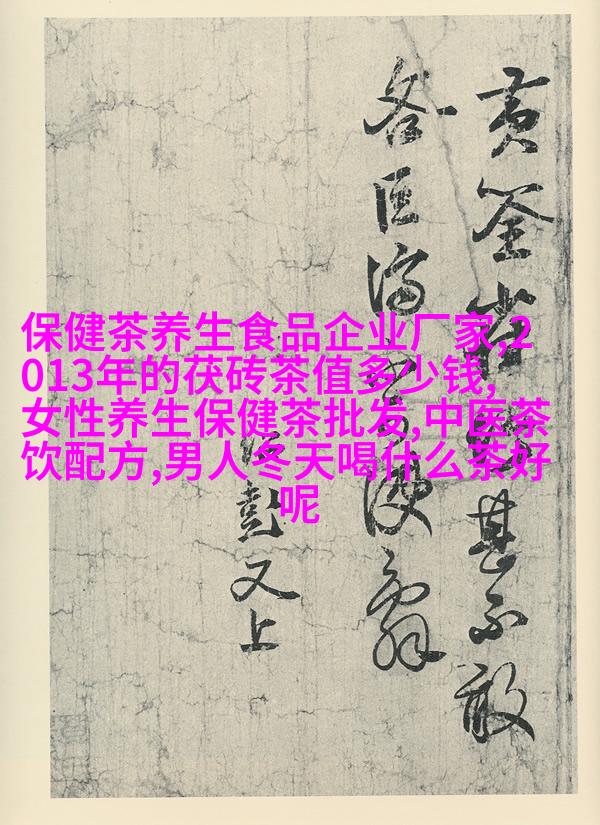 保健茶养生食品企业厂家,2
013年的茯砖茶值多少钱,
女性养生保健茶批发,中医茶
饮配方,男人冬天喝什么茶好
呢
黄筌甚不敢
各巨濟
又上